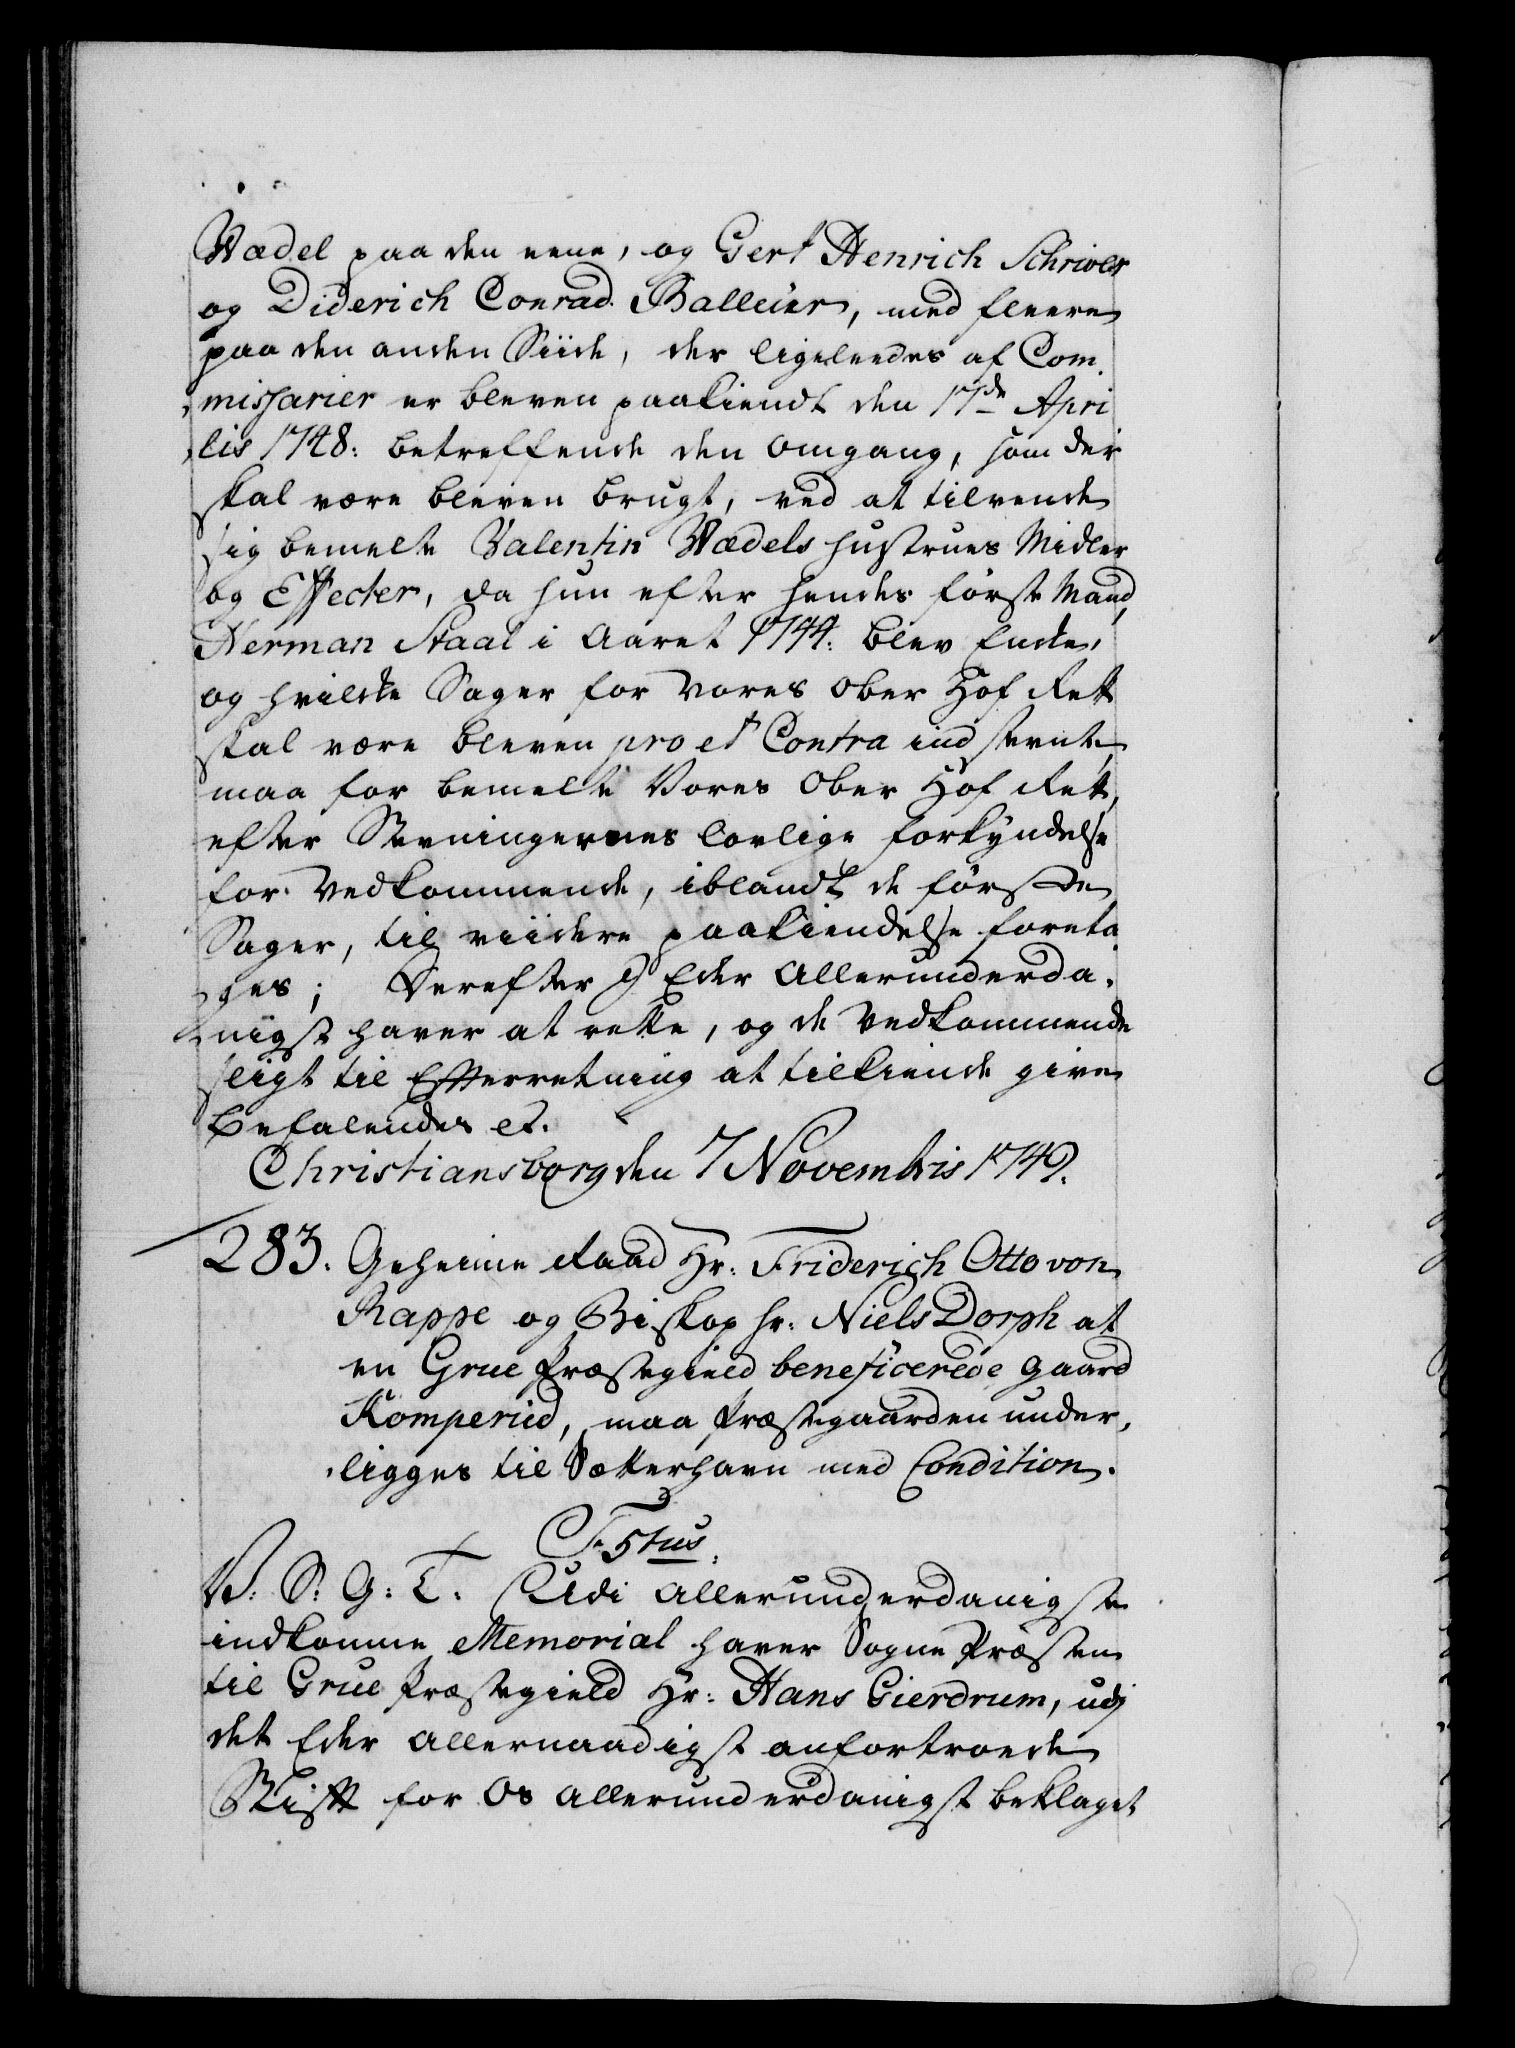 Wædel paa den eene, og Gert Henrich Schriver
og Diderich Conrad Balleür, med fleere
paa den anden Siide, der ligeleedes af Com-
missarier er bleven paakiendt den 17de Apri
lis 1748: betreffende den Omgang, som der
skal være bleven brugt, ved at tilvende
sig bemelte Valentin Wædels Hustrues Midler
og Effecter, da hun efter hendes første Mand,
Herman Staal i Aaret 1744: blev Encke,
og hvilcke Sager for Vores Ober Hof Rett
skal være bleven pro et Contra indstevnte
maa for bemelte Vores Ober Hof Rett,
efter Stevningernes lovlige forkyndelse
for Vedkommende, iblandt de første
Sager, til viidere paakiendelse foreta
ges; Derefter I Eder allerunderda-
nigst haver at rette, og de Vedkommende
sligt til Efterretning at tilkiende give
Befalendes et.
Christiansborg den 7 Novembris 1749.
283. Geheime Raad Hr: Friderich Otto von
Rappe og Biskop Hr: Niels Dorph at
en Grue Præstegield beneficerede Gaard
Komperud, maa Præstegaarden under-
ligges til Sætterhavn med Condition.
F 5tus.
W: S: G: T: Udi allerunderdanigste
indkomne Memorial haver Sogne Præsten
til Grue Præstegield Hr: Hans Gierdrum, udj
det Eder allernaadigst anfortroede
Stift for Os allerunderdanigst beklaget